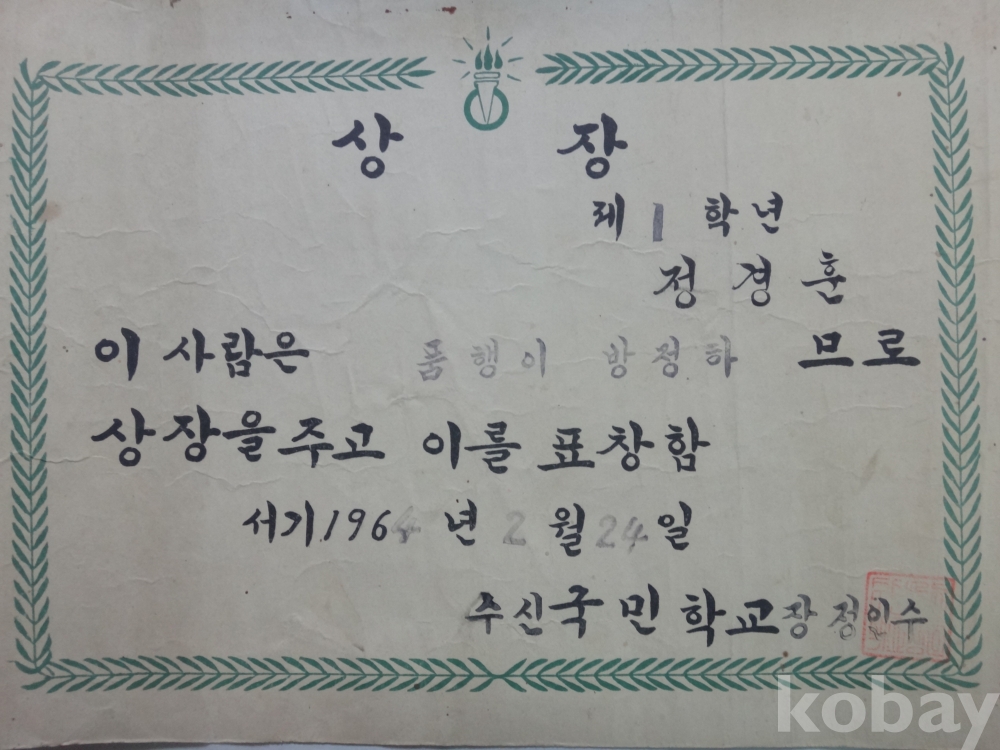 상 장
제 1 학년
정 경 훈
이 사람은 품행이 방정하 므로
상장을 주고 이를 표창함
서기 1964 년 2 월 24 일
수신국민학교장 정인수
kobay